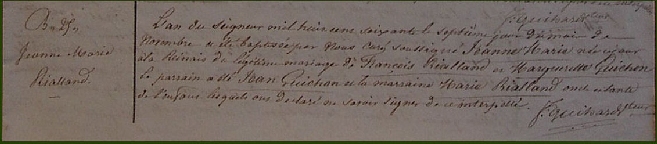 J. Guihard
B. de
Jeanne Marie
Rialland.
L'an du Seigneur mil huit cent soixante le septième jour du mois de
Novembre a été baptisée par Nous curé soussigné Jeanne Marie née ce jour
à la Rinais du légitime mariage de François Rialland et Marguerite Guichan
Le parrain a été Jean Guichan et la marraine Marie Rialland oncle et tante
de l'enfant lesquels ont déclaré ne savoir signer de ce interpellé.
J. Guihard